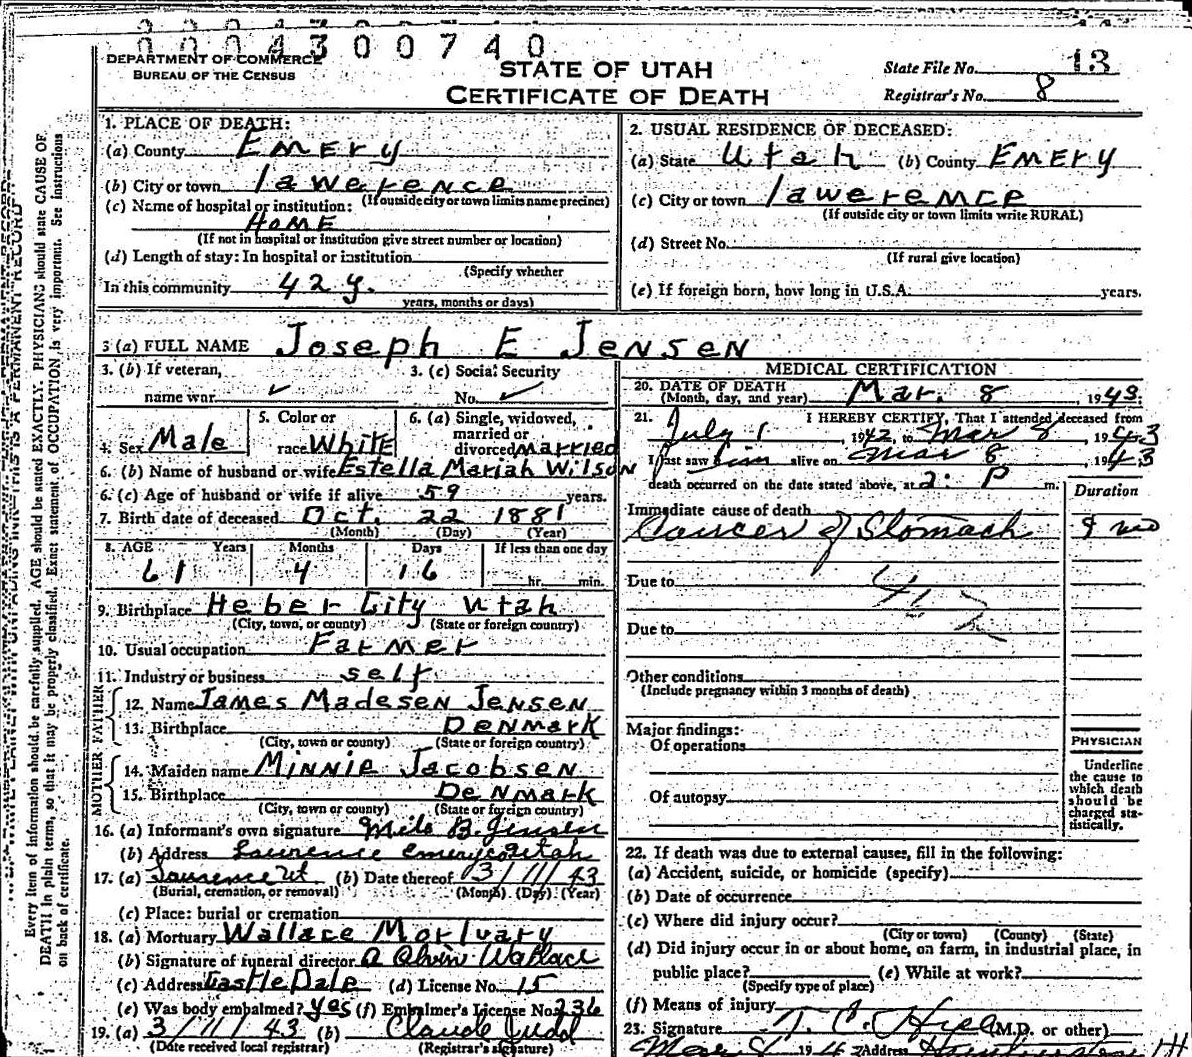 0004300740
DEPARTMENT OF COMMERCE
BUREAU OF THE CENSUS
STATE OF UTAH
CERTIFICATE OF DEATH
State File No. 13
Registrar's No. 8
Every item of information should be carefully supplied. AGE should be stated EXACTLY. PHYSICIANS should state CAUSE OF
DEATH in plain terms, so that it may be properly classified. Exact statement of OCCUPATION is very important. See instructions
on back of certificate.
1. PLACE OF DEATH:
(a) County Emery
(b) City or town lawerence
(If outside city or town limits name precinct)
(c) Name of hospital or institution:
HOME
(If not in hospital or institution give street number or location)
(d) Length of stay: In hospital or institution
(Specify whether
In this community 42 y.
years, months or days)
2. USUAL RESIDENCE OF DECEASED:
(a) State Utah (b) County EMERY
(c) City or town lawerence
(If outside city or town limits write RURAL)
(d) Street No.
(If rural give location)
(e) If foreign born, how long in U.S.A. years.
3 (a) FULL NAME Joseph E Jensen
3. (b) If veteran, name war ✓
3. (c) Social Security No. ✓
4. Sex Male
5. Color or race White
6. (a) Single, widowed, married or divorced married
6. (b) Name of husband or wife Estella Mariah Wilson
6. (c) Age of husband or wife if alive 59 years.
7. Birth date of deceased Oct. 22 1881
(Month) (Day) (Year)
8. AGE Years Months Days If less than one day
61 4 16 hr. min.
9. Birthplace Heber City Utah
(City, town, or county) (State or foreign country)
10. Usual occupation Farmer
11. Industry or business self
FATHER
12. Name James Madesen Jensen
13. Birthplace Denmark
(City, town or county) (State or foreign country)
MOTHER
14. Maiden name Minnie Jacobsen
15. Birthplace Denmark
(City, town or county) (State or foreign country)
16. (a) Informant's own signature Milo B. Jensen
(b) Address Lawrence Emery co Utah
17. (a) Lawrence Ut (b) Date thereof 3/11/43
(Burial, cremation, or removal) (Month) (Day) (Year)
(c) Place: burial or cremation
18. (a) Mortuary Wallace Mortuary
(b) Signature of funeral director A Alvin Wallace
(c) Address Castle Dale (d) License No. 15
(e) Was body embalmed? yes (f) Embalmer's License No. 236
19. (a) 3/11/43 (b) Claude Judd
(Date received local registrar) (Registrar's signature)
MEDICAL CERTIFICATION
20. DATE OF DEATH
(Month, day, and year) Mar. 8 1943.
21. I HEREBY CERTIFY, That I attended deceased from
July 1, 1942, to Mar 8, 1943
I last saw him alive on Mar 8, 1943
death occurred on the date stated above, at 2: P m.
Duration
Immediate cause of death
Cancer of Stomach
Due to
Due to
Other conditions
(Include pregnancy within 3 months of death)
Major findings:
Of operations
Of autopsy
PHYSICIAN
Underline
the cause to
which death
should be
charged sta-
tistically.
22. If death was due to external causes, fill in the following:
(a) Accident, suicide, or homicide (specify)
(b) Date of occurrence
(c) Where did injury occur?
(City or town) (County) (State)
(d) Did injury occur in or about home, on farm, in industrial place, in
public place? (e) While at work?
(Specify type of place)
(f) Means of injury
23. Signature T. C. Hill (M.D. or other)
Address Huntington